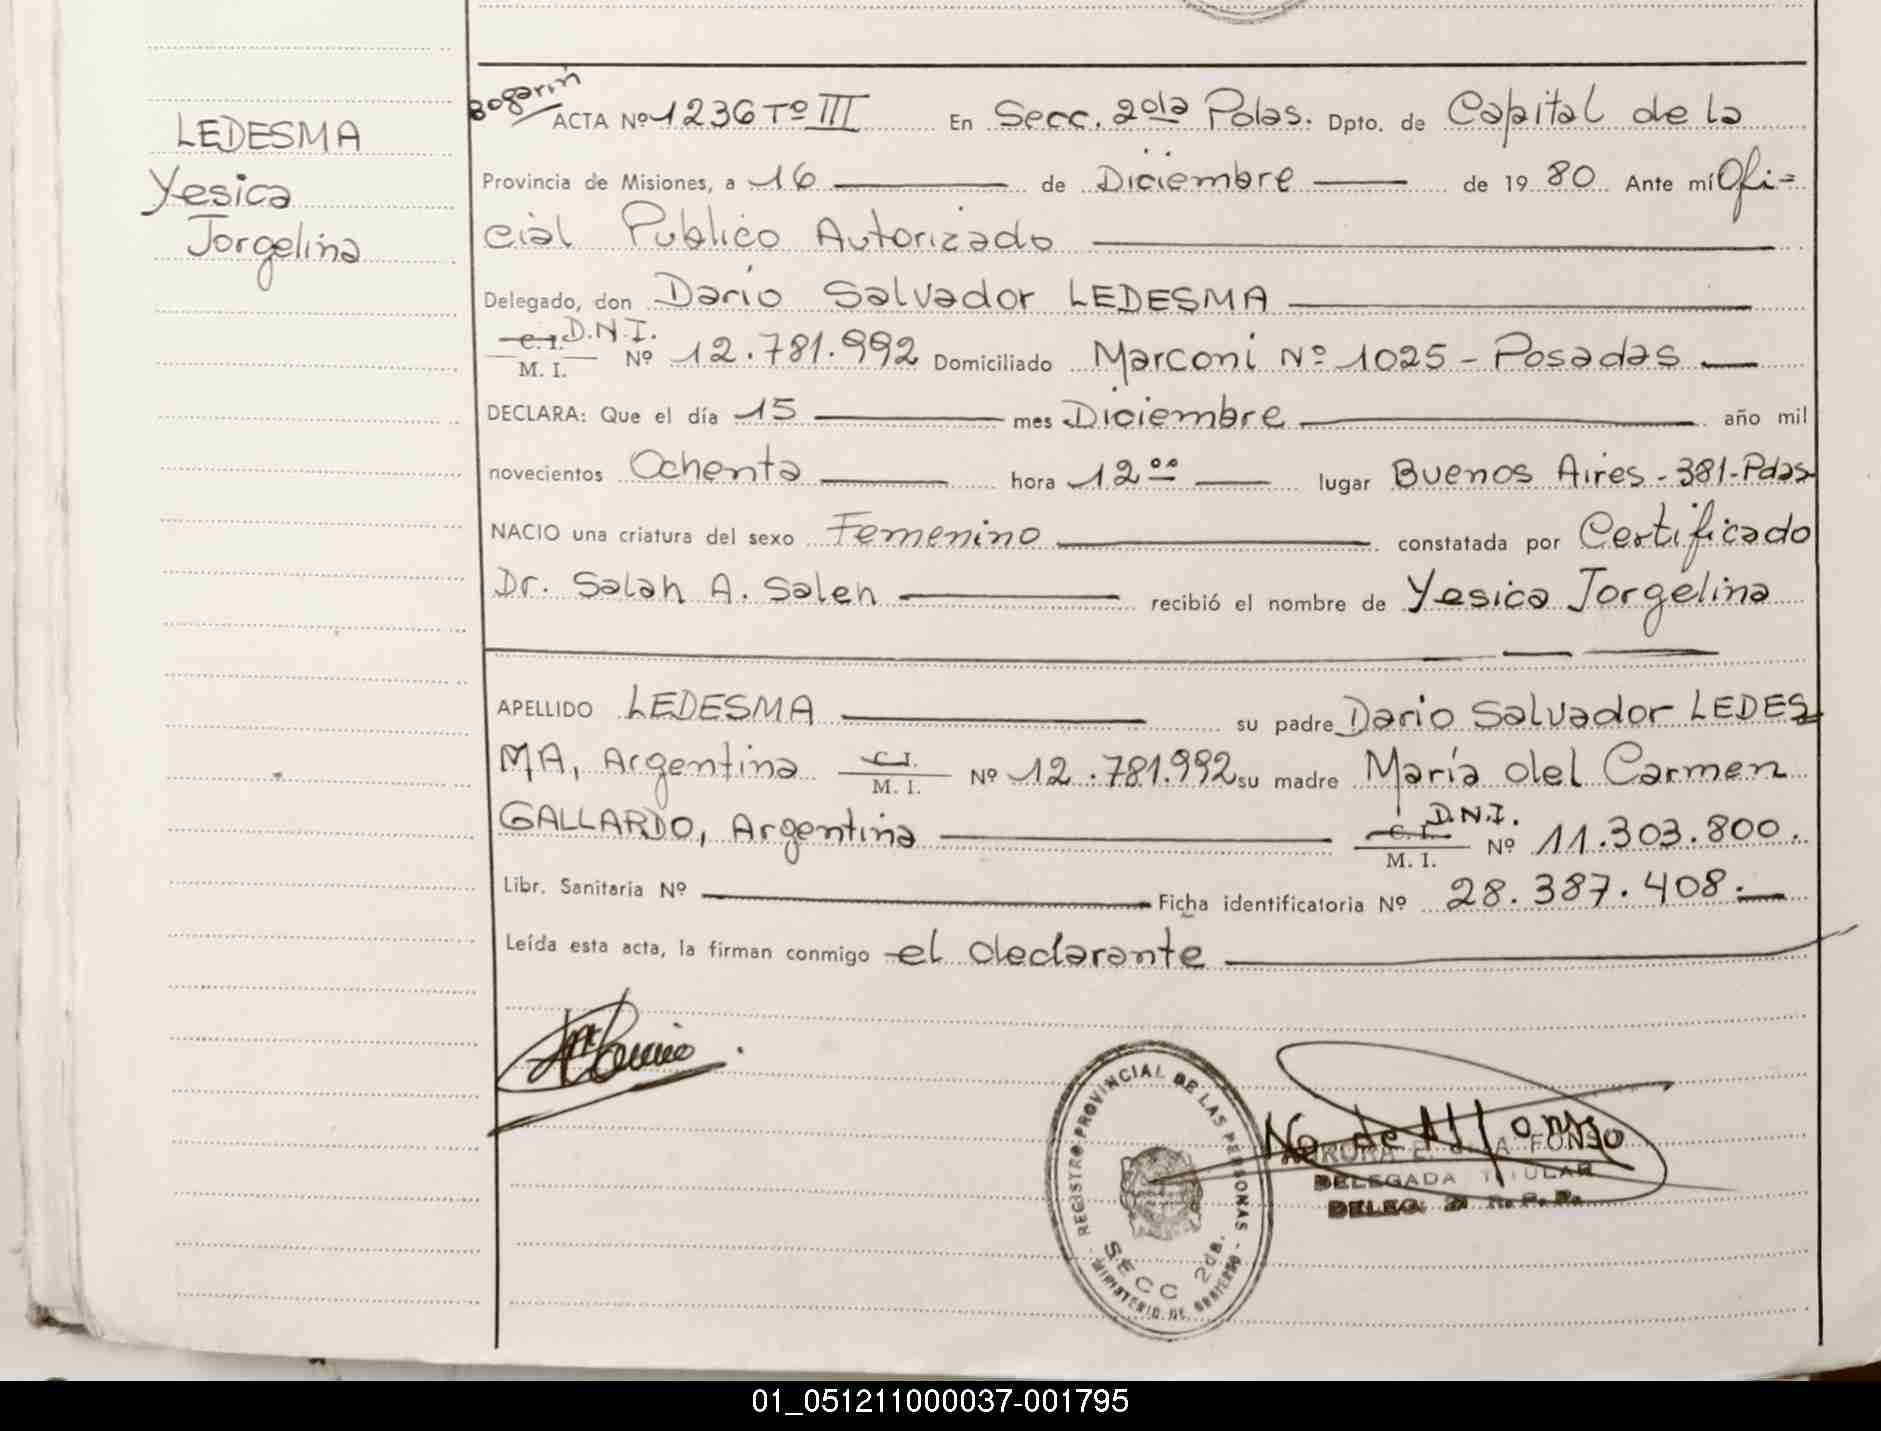 LEDESMA
Yesica
Jorgelina
Bogarin
ACTA Nº 1236 Tº III En Secc. 2da Pdas. Dpto. de Capital de la
Provincia de Misiones, a 16 de Diciembre de 19 80 Ante mí Ofi=
cial Publico Autorizado
Delegado, don Dario Salvador LEDESMA
C. I. D.N.I.
M. I. Nº 12.781.992 Domiciliado Marconi Nº 1025 - Posadas
DECLARA: Que el día 15 mes Diciembre año mil
novecientos Ochenta hora 12 oo lugar Buenos Aires - 381 - Pdas
NACIO una criatura del sexo Femenino constatada por Certificado
Dr. Salah A. Saleh recibió el nombre de Yesica Jorgelina
APELLIDO LEDESMA su padre Dario Salvador LEDES
MA, Argentina C. I. M. I. Nº 12.781.992 su madre María del Carmen
GALLARDO, Argentina C. I. D.N.I. M. I. Nº 11.303.800.
Libr. Sanitaria Nº Ficha identificatoria Nº 28.387.408.
Leída esta acta, la firman conmigo el declarante
REGISTRO PROVINCIAL DE LAS PERSONAS
SECC 2da.
MINISTERIO DE GOBIERNO
DELEGADA TITULAR
01_051211000037-001795